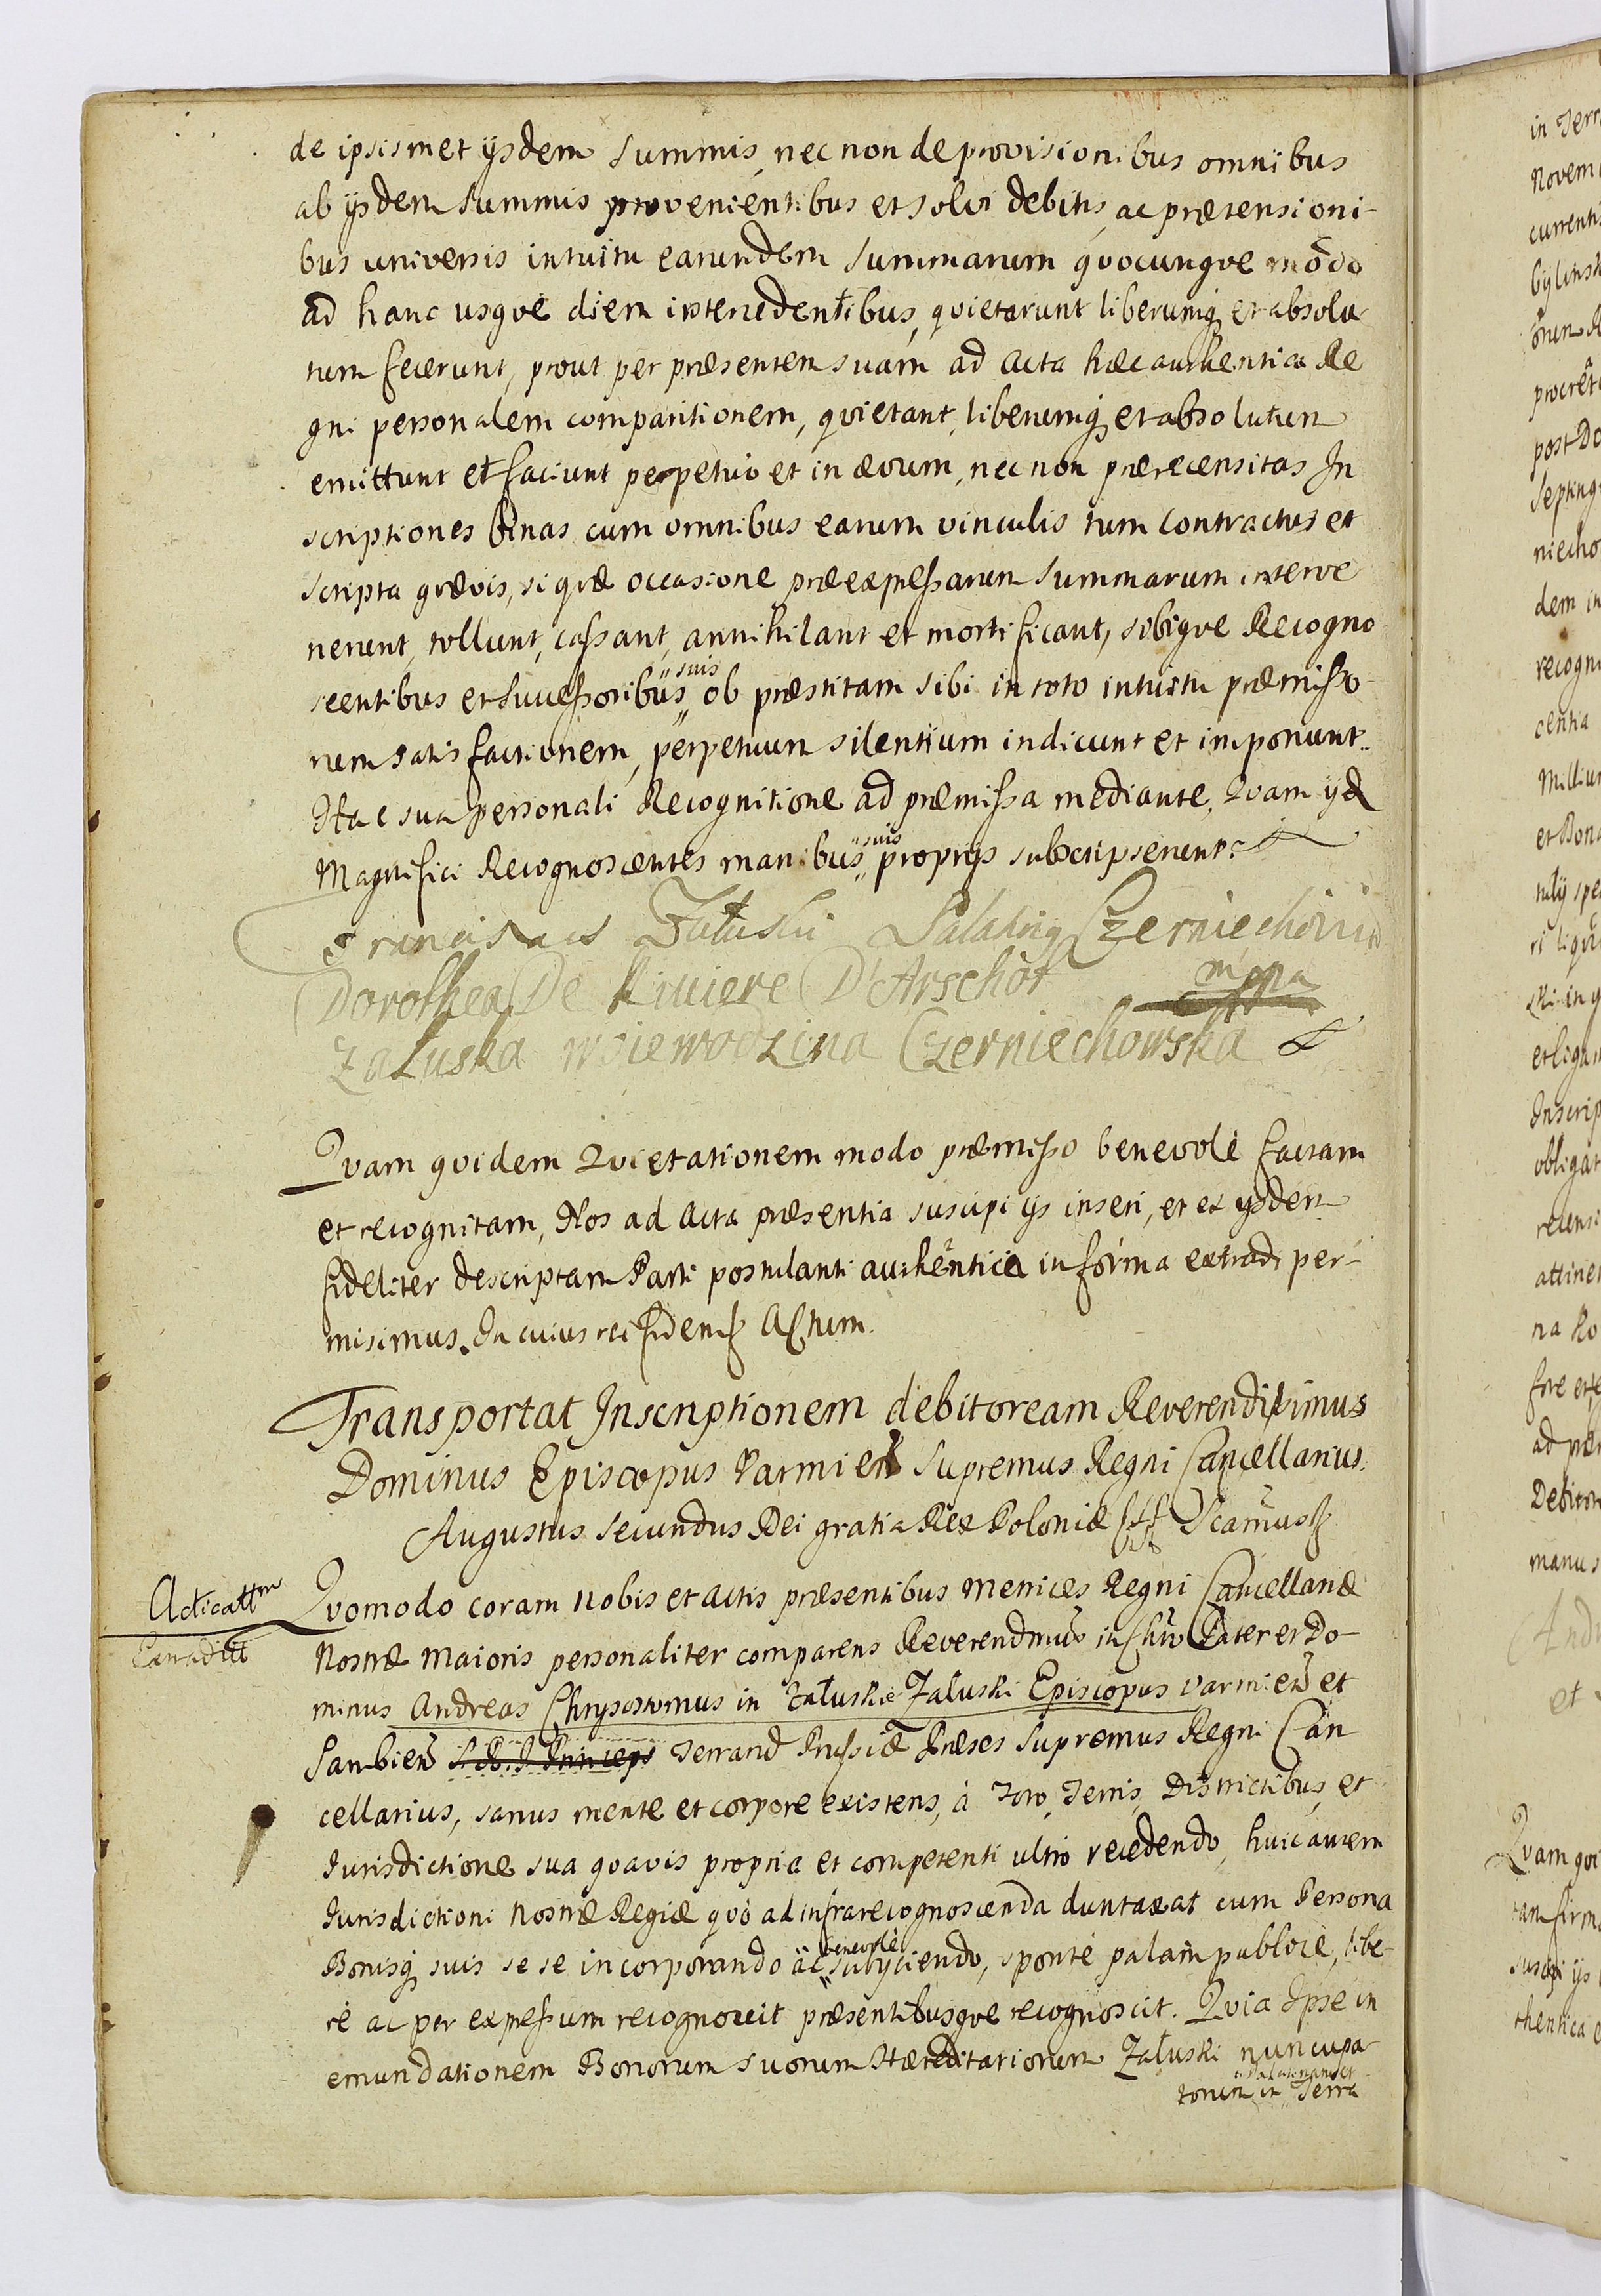 de ipsismet ijsdem Summis, nec non de provisionibus omnibus
ab ijsdem Summis provenientibus et solvi debitis, ac prætensioni-
bus universis intuitu earundem Summarum quocunque modo
ad hanc usque diem intercedentibus, quietarunt liberumq et absolu
tum fecerunt, prout per præsentem suam ad Acta hæc authentica Re
gni personalem comparitionem, quietant, liberumq et absolutum
emittunt et faciunt perpetuò et in ævum, nec non prærecensitas In
scriptiones binas cum omnibus earum vinculis tum Contractus et
scripta quævis, si quæ occasione præexpressarum Summarum interve
nerunt, tollunt, cassant, annihilant et mortificant, sibique Recogno
scentibus et Successoribus suis ob præstitam sibi in toto intuitu præmisso-
rum satisfactionem, perpetuum silentium indicunt et imponunt.
Hac sua personali Recognitione ad præmissa mediante, Quam ijd
Magnifici Recognoscentes manibus suis proprijs subscripserunt.
Franciscus Załuski Palatinq Czerniechovien
mppa
Dorothea De Riviere D'Arschot
Załuska woiewodzina Czerniechowska
Quam quidem Quietationem modo præmisso benevolè factam
et recognitam, Nos ad Acta præsentia suscipi ijs inseri, et ex ijsdem
fideliter descriptam Parti postulanti authentica in forma extradi per-
misimus. In cuius rei fidem Actum.
Transportat Inscriptionem debitoream Reverendissimus
Dominus Episcopus Varmien Supremus Regni Cancellarius.
Augustus Secundus Dei gratia Rex Poloniæ
Acticattm
Quomodo coram Nobis et Actis præsentibus Metrices Regni Cancellariæ
Nostræ Maioris personaliter comparens Reverendmus in Chro Pater et Do-
minus Andreas Chrysostomus in Załuskie Załuski Episcopus Varmien et
Sambien S. R. I. Princeps Terrarum Prussiæ Præses Supremus Regni Can
cellarius, sanus mente et corpore existens, à Foro, Terris, Districtibus, et
Iurisdictione sua quavis propria et competenti ultrò recedendo, huic autem
Iurisdictioni Nostræ Regiæ quò ad infrarecognoscenda duntaxat cum Persona
Bonisq suis se se incorporando ac benevolè subijciendo, spontè palam publicè, libe-
rè ac per expressum recognovit præsentibusque recognoscit. Quia Ipse in
emundationem Bonorum suorum Hæreditariorum Załuski nuncupa
torum in Terra